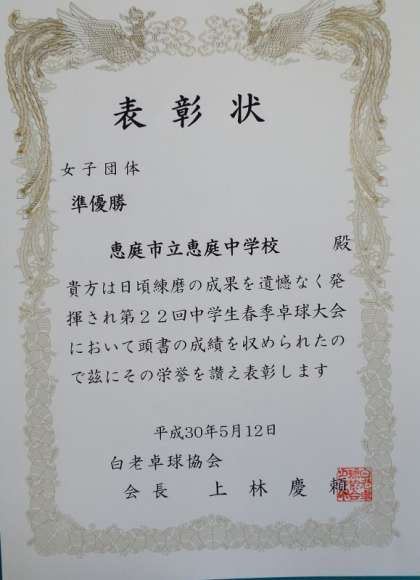 表彰状
女子団体
準優勝
恵庭市立恵庭中学校 殿
貴方は日頃練磨の成果を遺憾なく発
揮され第２２回中学生春季卓球大会
において頭書の成績を収められたの
で茲にその栄誉を讃え表彰します
平成30年5月12日
白老卓球協会
会長 上林慶頼